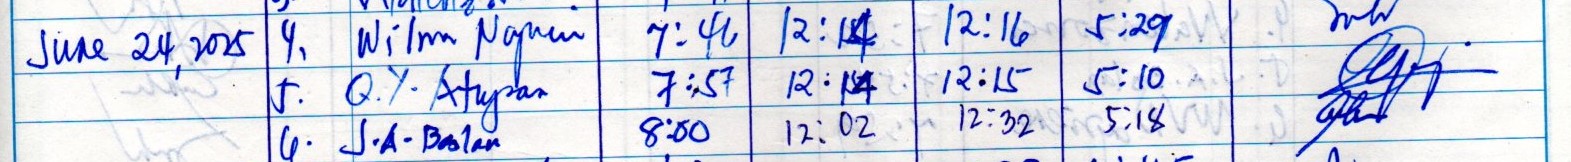 June 24, 2025 4. Wilma 7:46 12:14 12:16 5:29
5. Q.Y. Atupan 7:57 12:14 12:15 5:10
6. J.A. Baslan 8:00 12:02 12:32 5:18